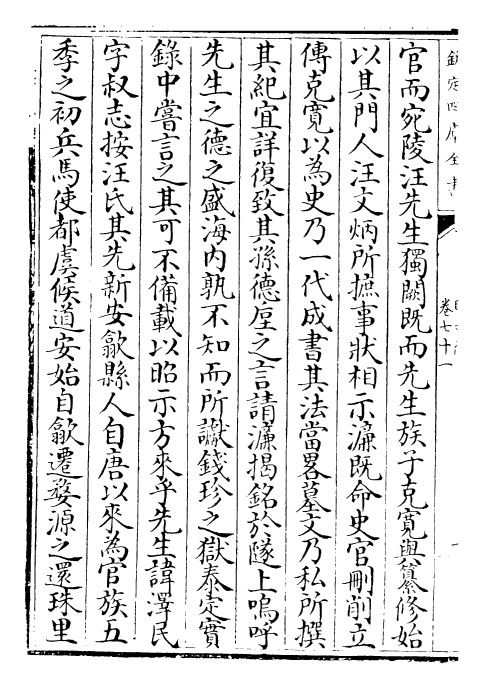 官而宛陵汪先生獨闕既而先生族子克寛與纂修始
以其門人汪文炳所摭事狀相示濂既命史官刪削立
傳克寛以為史乃一代成書其法當畧墓文乃私所撰
其紀宜詳復致其孫德垕之言請濂揭銘於隧上嗚呼
先生之德之盛海内孰不知而所讞錢珍之獄泰定實
錄中嘗言之其可不備載以昭示方來乎先生諱澤民
字叔志按汪氏其先新安歙縣人自唐以來為官族五
季之初兵馬使都虞候道安始自歙遷婺源之還珠里
欽定四庫全書
卷七十一